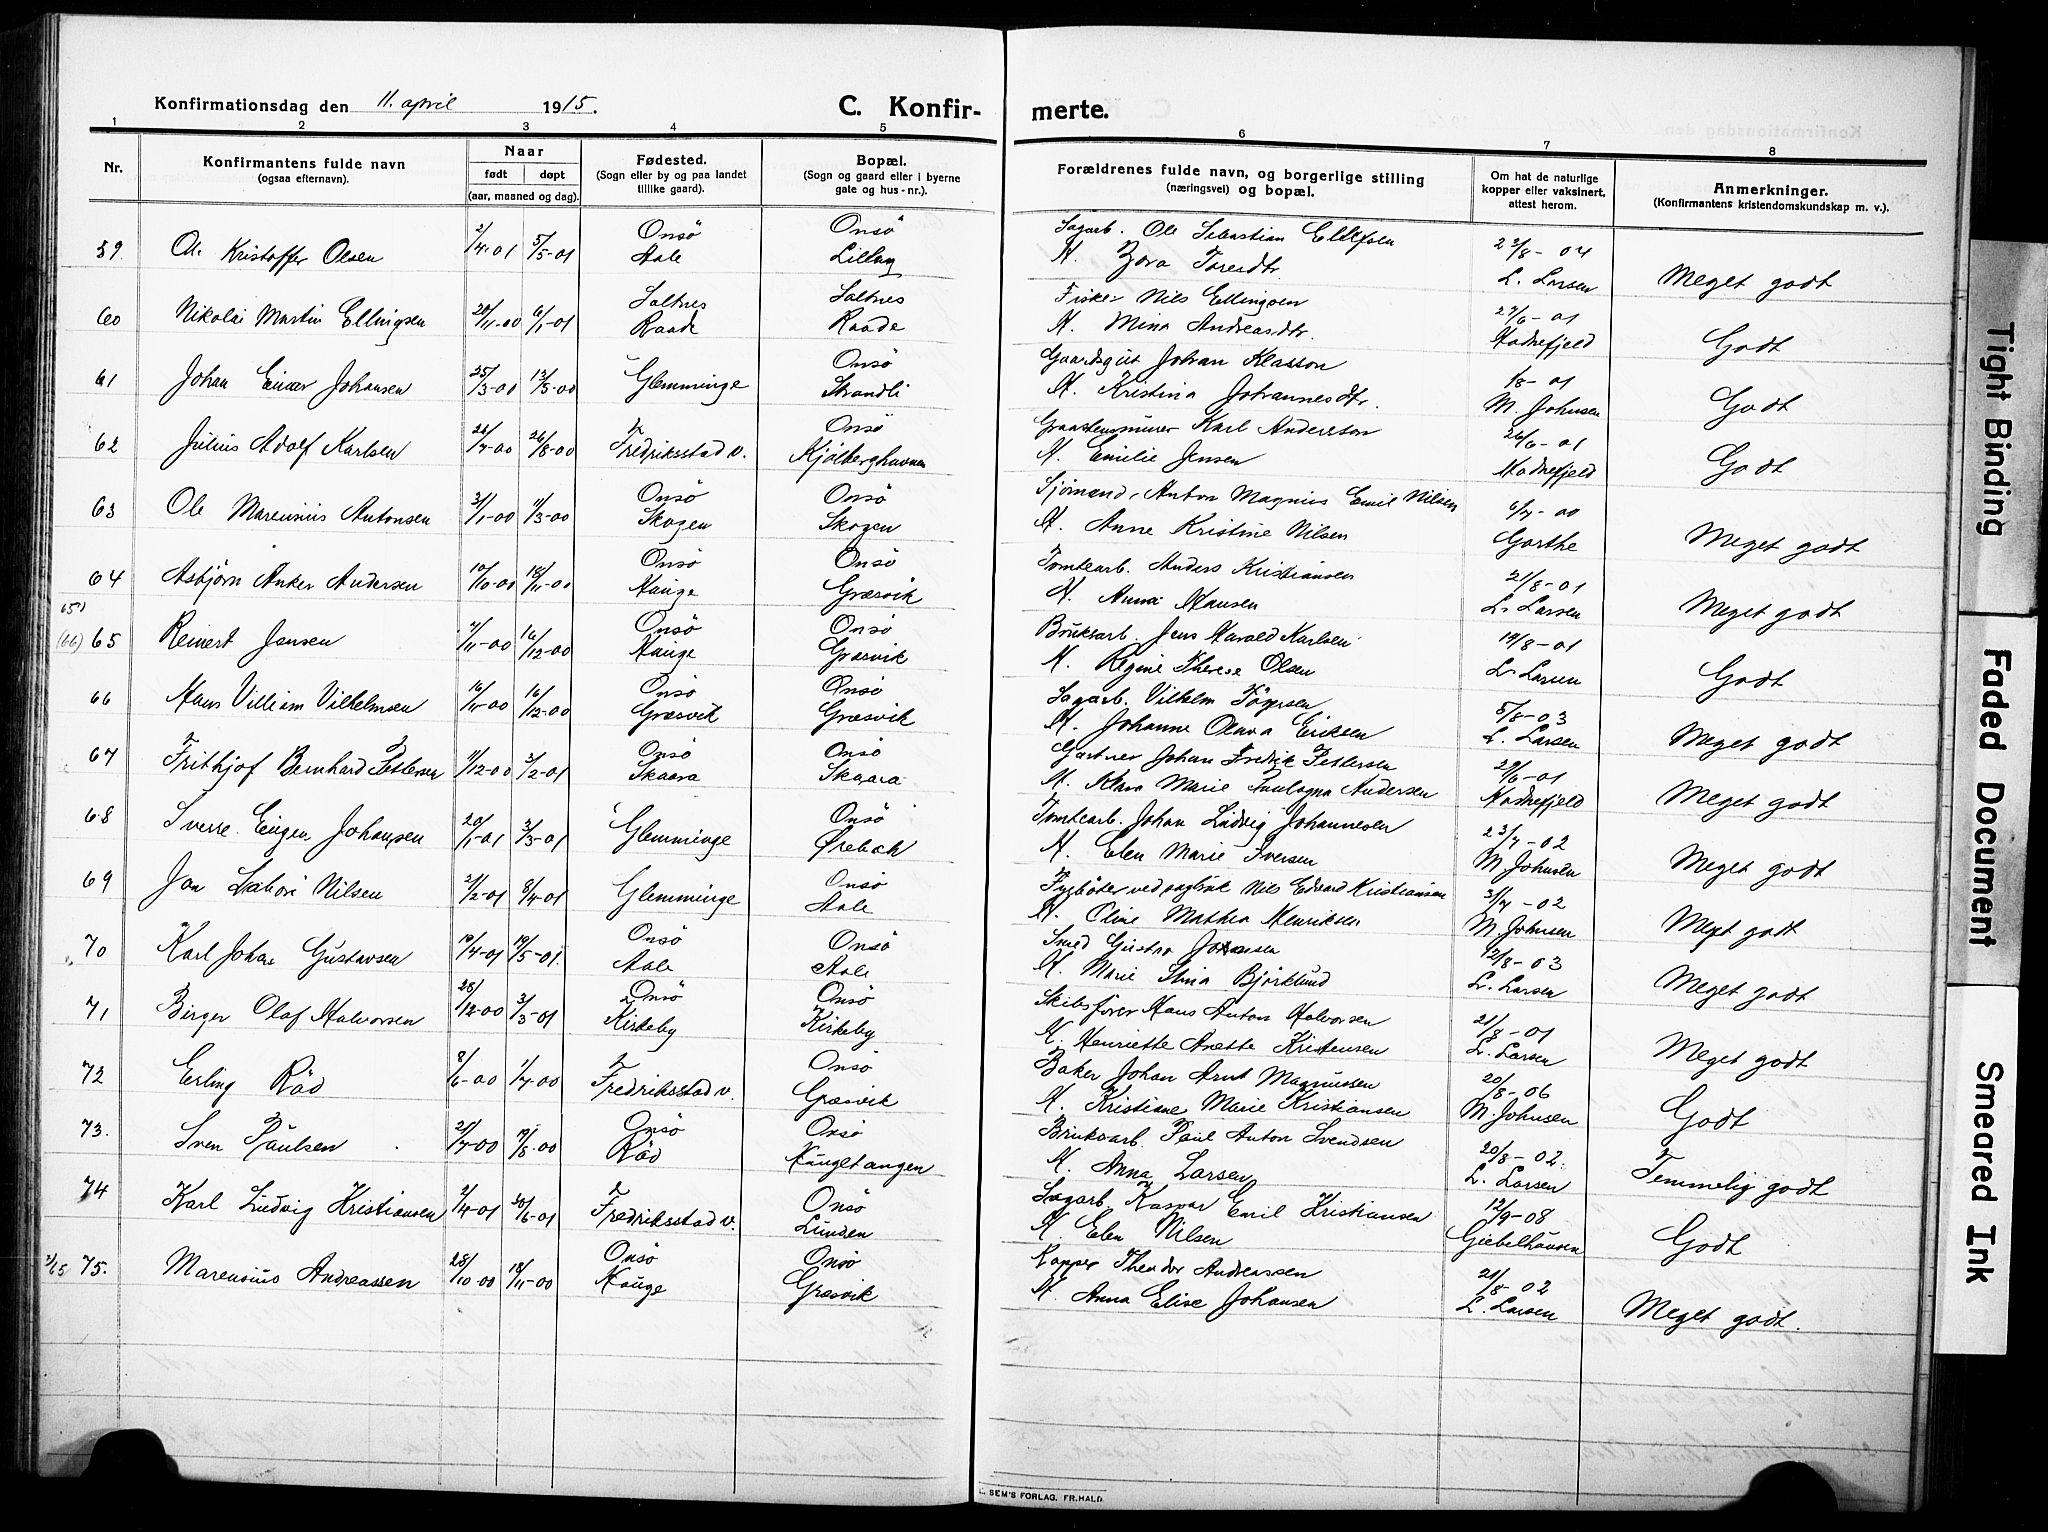 Konfirmationsdag den 11. april 1915.
C. Konfir-
merte.
1 2 3 4 5 6 7 8
Nr.
Konfirmantens fulde navn
(ogsaa efternavn).
Naar
født døpt
(aar, maaned og dag).
Fødested.
(Sogn eller by og paa landet
tillike gaard).
Bopæl.
(Sogn og gaard eller i byerne
gate og hus-nr.).
Forældrenes fulde navn, og borgerlige stilling
(næringsvei) og bopæl.
Om hat de naturlige
kopper eller vaksinert,
attest herom.
Anmerkninger.
(Konfirmantens kristendomskundskap m. v.).
Onsö Onsö Sagarb. Ole Sebastian Ellefsen
59. Ole Kristoffer Olsen 2/4-01 5/5-01 Aale H. Toresdtr. 23/8-04 L. Larsen Meget godt
Saltnes Saltnes Fisker Nils Ellingsen
60 Nikolai Martin Ellingsen 20/11-00 6/1-01 Raade Raade H. Mina Andreasdtr. 27/6-01 Godt
Onsö Gaardsgut Johan Klasson
61 Johan Einar Johansen 25/3-00 13/5-00 Glemminge Strandli H. Kristina Johannesdtr. 1/8-01 M. Johnsen Godt
Onsö Karl Andersson
62 Julius Adolf Karlsen 26/8-00 Fredriksstad v. Kjölberghavnen H. Emilie Jensen 26/6-01 Godt
Onsö Onsö Sjömand Anton Magnus Emil Nilsen
63 Ole Marensius Antonsen 3/1-00 11/3-00 Skogen Skogen H. Anne Kristine Nilsen 6/7-00 Garthe Meget godt
Onsö Onsö Tomtearb. Anders Kristiansen
64 Asbjörn Anker Andersen 10/10-00 18/11-00 Hauge Græsvik H. Anna Hansen 21/8-01 L. Larsen Meget godt
Onsö Onsö Bruksarb. Jens Harald Karlsen
(66) 65 Reinert Jensen 16/12-00 Hauge Græsvik H. Regine Therese Olsen 19/8-01 L. Larsen Godt
Onsö Onsö Sagarb. Vilhelm Jörgensen
66 Hans Villiam Vilhelmsen 16/11-00 16/12-00 Græsvik Græsvik H. Johanne Olava Eriksen 5/8-03 L. Larsen Meget godt
Onsö Onsö Gartner Johan Fredrik Pettersen
67 Frithjof Bernhard Pettersen 11/12-00 3/2-01 Skaara Skaara H. Klara Marie Andersen 29/6-01 Meget godt
Onsö Tomtearb. Johan Ludvig Johannesen
68 Sverre Eugen Johansen 20/1-01 3/3-01 Glemminge Ørebæk H. Elen Marie Iversen 23/7-02 M. Johnsen Meget godt
Onsö Nils Edvard Kristiansen
69 Jon Nilsen 8/4-01 Glemminge Aale H. Oline Mathea Henriksen 31/7-02 M. Johnsen Meget godt
Onsö Onsö Smed Gustav Johansen
70 Karl Johan Gustavsen 19/4-01 19/5-01. Aale Aale H. Marie Stina Björklund 12/8-03 L. Larsen Meget godt
Onsö Onsö Skibsförer Hans Anton Halvorsen
71 Birger Olaf Halvorsen 28/12-00 3/3-01 Kirkeby Kirkeby H. Henriette Anette Kristensen 21/8-01 L. Larsen Meget godt
Onsö Baker Johan Arnt Magnussen
72 Erling Röd 8/6-00 1/7-00 Fredriksstad v. Græsvik H. Kristiane Marie Kristiansen 20/8-06 M. Johnsen Godt
Onsö Onsö Bruksarb. Paul Anton Svendsen
73. Sven Paulsen 21/7-00 19/8-00 Röd Haugetangen H. Anna Larsen 20/8-02. L. Larsen Temmelig godt
Onsö Sagarb. Kaspar Emil Kristiansen
74 Karl Ludvig Kristiansen 30/6-01 Fredriksstad v. Lunden H. Elen Nilsen 12/9-08 Giebelhausen Godt
Onsö Onsö Theodor Andreassen
75. Marensius Andreassen 28/10-00 18/11-00 Hauge Græsvik H. Anna Elise Johansen 21/8-02 L. Larsen Meget godt.
SEM'S FORLAG, FR.HALD.
Tight Binding
Faded Document
Smeared Ink